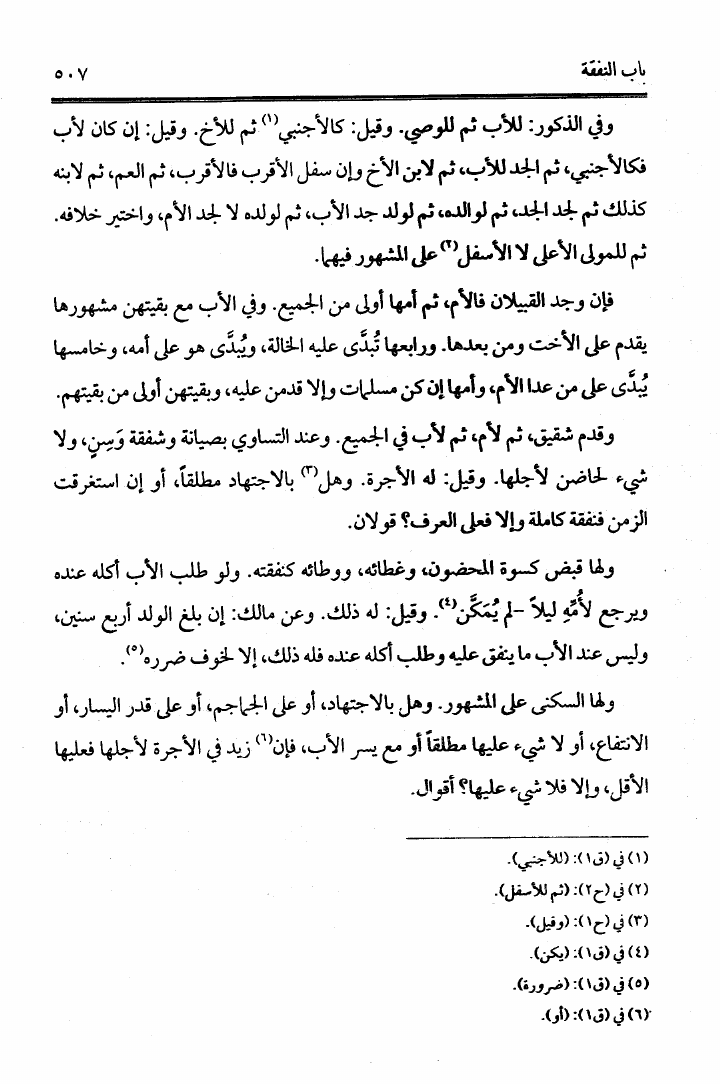 باب النفقة ٥٠٧
وفي الذكور: للأب ثم للوصي. وقيل: كالأجنبي(١) ثم للأخ. وقيل: إن كان لأب
فكالأجنبي، ثم الجد للأب، ثم لابن الأخ وإن سفل الأقرب فالأقرب، ثم العم، ثم لابنه
كذلك ثم لجد الجد، ثم لوالده، ثم لولد جد الأب، ثم لولده لا لجد الأم، واختير خلافه.
ثم للمولى الأعلى لا الأسفل(٢) على المشهور فيهما.
فإن وجد القبيلان فالأم، ثم أمها أولى من الجميع. وفي الأب مع بقيتهن مشهورها
يقدم على الأخت ومن بعدها. ورابعها تُبدَّى عليه الخالة، ويُبدَّى هو على أمه، وخامسها
يُبدَّى على من عدا الأم، وأمها إن كن مسلمات وإلا قدمن عليه، وبقيتهن أولى من بقيتهم.
وقدم شقيق، ثم لأم، ثم لأب في الجميع. وعند التساوي بصيانة وشفقة وَسِنٍ، ولا
شيء لحاضن لأجلها. وقيل: له الأجرة. وهل(٣) بالاجتهاد مطلقاً، أو إن استغرقت
الزمن فنفقة كاملة وإلا فعلى العرف؟ قولان.
ولها قبض كسوة المحضون، وغطائه، ووطائه كنفقته. ولو طلب الأب أكله عنده
ويرجع لأُمِّهِ ليلاً -لم يُمَكَّن(٤). وقيل: له ذلك. وعن مالك: إن بلغ الولد أربع سنين،
وليس عند الأب ما ينفق عليه وطلب أكله عنده فله ذلك، إلا لخوف ضرره(٥).
ولها السكنى على المشهور. وهل بالاجتهاد، أو على الجماجم، أو على قدر اليسار، أو
الانتفاع، أو لا شيء عليها مطلقاً أو مع يسر الأب، فإن(٦) زيد في الأجرة لأجلها فعليها
الأقل، وإلا فلا شيء عليها؟ أقوال.
(١) في (ق١): (للأجنبي).
(٢) في (ح٢): (ثم للأسفل).
(٣) في (ح١): (وقيل).
(٤) في (ق١): (يكن).
(٥) في (ق١): (ضرورة).
(٦) في (ق١): (أو).